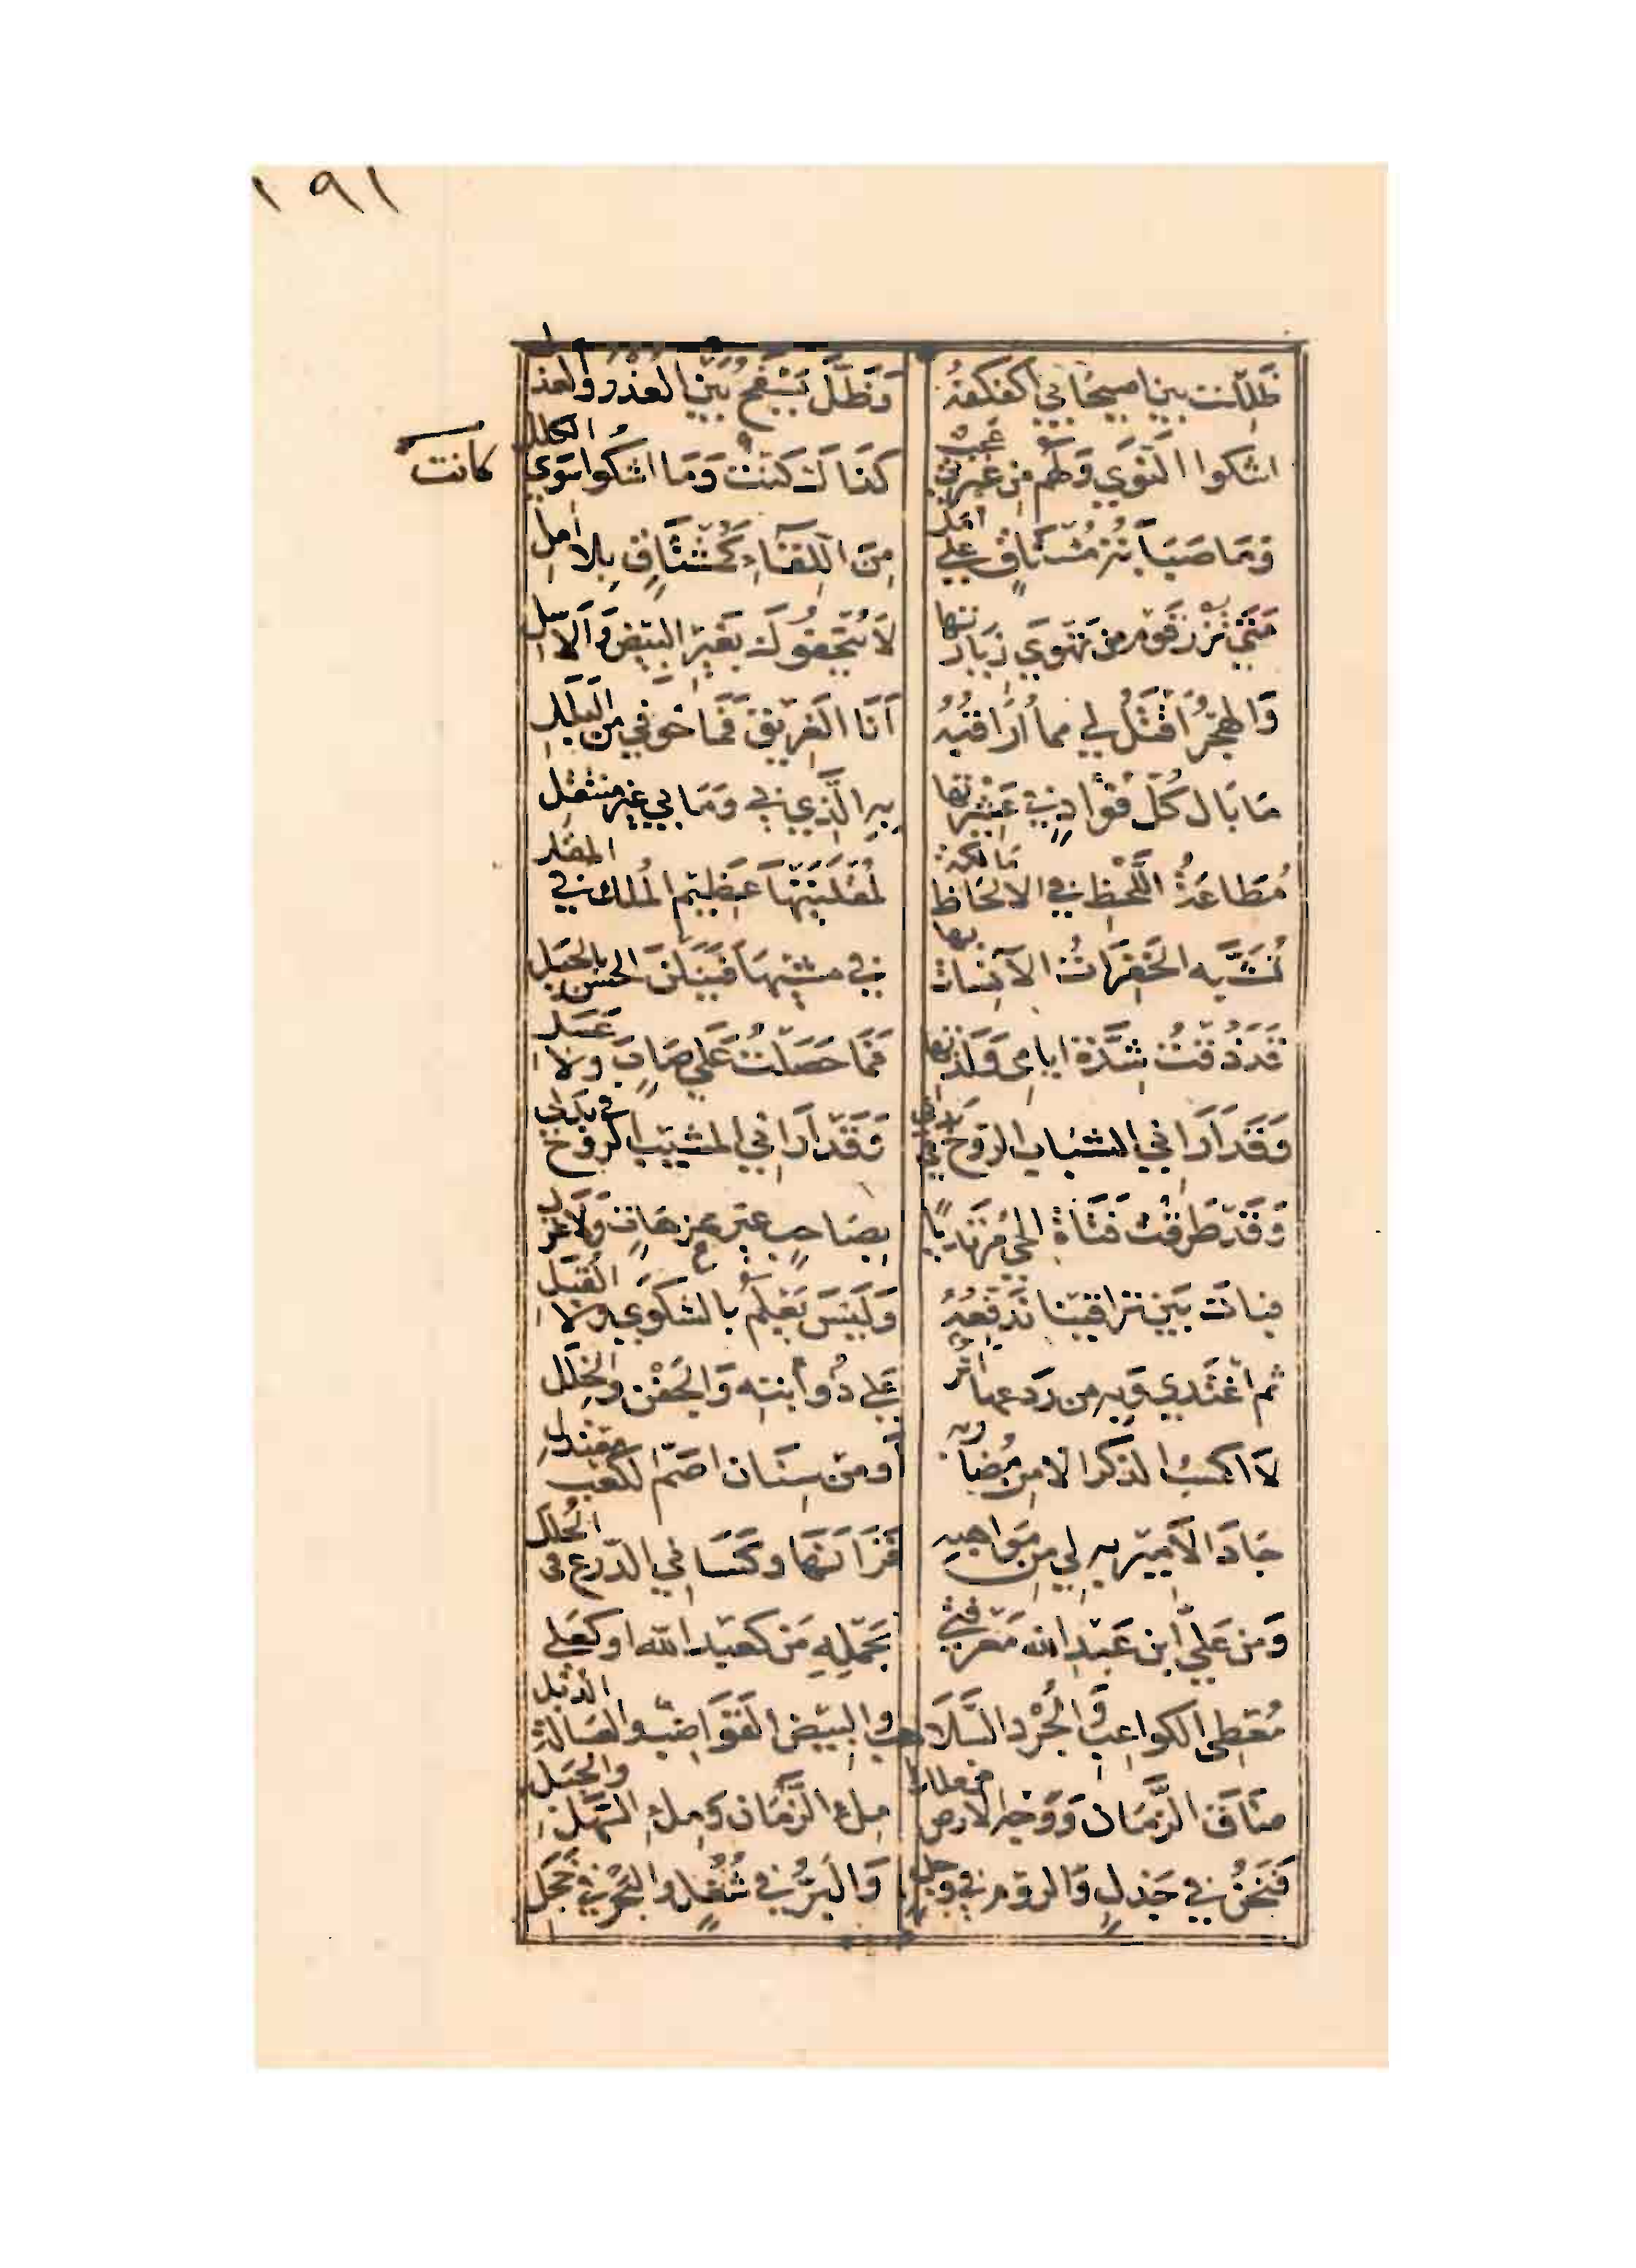 ١٩١
ظللت بين اصيحابي اكفكفه وَظَلَّ يَسْفَحُ بَيْنَ العُذْرِ وَالعذل
اشكوا النَوَى وَلَهُم مِن عَبْرَتي عَجَبٌ كَذَاكَ كنت وَمَا اشكوا سِوَى الكلل
كانت
وَمَا صَبَابَةُ مُشتَاقٍ عَلى أمَلٍ مِنَ اللِّقَاءِ كَمُشْتَاقٍ بِلا امل
مَتَى تَزُرْ قَوْم من تَهْوَى زيارتها لاَ يُتْحِفُوكَ بِغَيْرِ البِيْضِ وَالاسل
وَالهجرُ اَقْتَلُ لي مما اُرَاقبُهُ اَنَا الغَرِيْقُ فَمَا خَوفي مِنَ البَلَلِ
مَا بَال كُلِّ فُؤَادٍ في عَشِيْرتها بِهِ الَّذِي بي وَمَا بي غير منتقل
مُطَاعَةُ اللَّحْظِ في الالحَاظِ مَالكة لمُقْلَتَيْهَا عَظِيْم المُلك في المقل
تُشَبَّه الخَفِرَاتُ الآنِسَات بها في مشيِهَا فَيَنَلْنَ الحسن بالحيَل
قَد ذُقْتُ شِدَّة ايامى وَلَذتها فَمَا حَصَلْتُ عَلى صَابٍ ولا عسل
وَقَد اَرَاني الشبابُ الروحَ في بَدَني وَقَد اَرَاني المشيبُ الروح في بدلى
وَقَد طَرَقْتُ فَتَاةَ الحى مُرْتَدِيًا بِصَاحِبٍ غير عزهَاةٍ وَلاَ غزل
فبات بَيْن تراقينا نُدَفِّعُهُ وَلَيْسَ يَعْلَمُ بالشكوى ولا القُبَل
ثم اغْتَدى وَبِهِ من رَدعها اَثَرٌ عَلى ذُؤابته وَالجَفْنِ والخِلَل
لاَ اكسبُ الذكر الا من مُضَاربه اَو من سِنَان اصَمّ الكعب معتدل
جَادَ الاَميرُ بِهِ لي مِن مَوَاهِبِهِ فَزَانَهَا وكَسَاني الدّرع فى الحُلَل
وَمن عَليِّ ابن عَبْدِ الله مَعْرفَتي بَحَمْلِهِ مَن كعبد الله او كَعَلي
مُعْطِى الكواعِبِ وَالجُرْدِ السَّلاَهب والبِيْض القَوَاضب والعسالة الذُبُل
ضَاقَ الزَّمَان وَوَجْه الارض عن ملك مِلءِ الزَّمَان وَمِلءِ السَّهْلِ والجبَل
فَنَحْنُ في جَذلٍ وَالروم في وجل وَالبَرُّ في شُغُلٍ والبَحْرُ في خجل